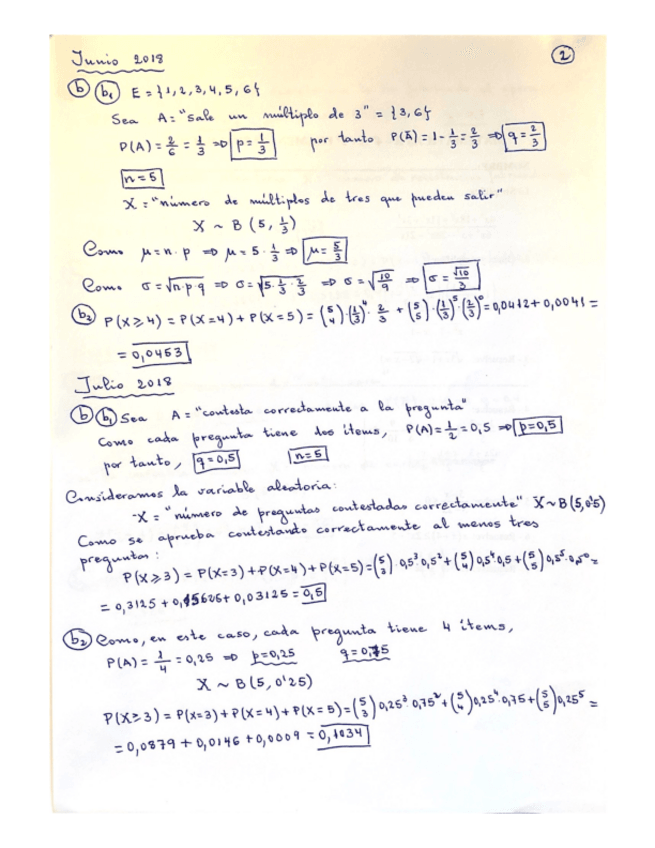 Junio 2018 ②
ⓑ (b₁) E = {1,2,3,4,5,6}
Sea A = "sale un múltiplo de 3" = {3,6}
P(A) = 2/6 = 1/3 ⇒ p = 1/3 por tanto P(Ā) = 1 - 1/3 = 2/3 ⇒ q = 2/3
n = 5
X = "número de múltiplos de tres que pueden salir"
X ~ B (5, 1/3)
Como μ = n·p ⇒ μ = 5·1/3 ⇒ μ = 5/3
Como σ = √n·p·q ⇒ σ = √5·1/3·2/3 ⇒ σ = √10/9 ⇒ σ = √10/3
(b₂) P(X ≥ 4) = P(X=4) + P(X=5) = (5 4)·(1/3)⁴·2/3 + (5 5)·(1/3)⁵·(2/3)⁰ = 0,0412 + 0,0041 =
= 0,0453
Julio 2018
ⓑ (b₁) Sea A = "contesta correctamente a la pregunta"
Como cada pregunta tiene dos ítems, P(A) = 1/2 = 0,5 ⇒ p = 0,5
por tanto, q = 0,5 n = 5
Consideramos la variable aleatoria:
-X = "número de preguntas contestadas correctamente" X ~ B(5,0'5)
Como se aprueba contestando correctamente al menos tres
preguntas:
P(X ≥ 3) = P(X=3) + P(X=4) + P(X=5) = (5 3)·0,5³·0,5² + (5 4) 0,5⁴·0,5 + (5 5) 0,5⁵·0,5⁰ =
= 0,3125 + 0,15625 + 0,03125 = 0,5
(b₂) Como, en este caso, cada pregunta tiene 4 ítems,
P(A) = 1/4 = 0,25 ⇒ p = 0,25 q = 0,75
X ~ B (5, 0'25)
P(X ≥ 3) = P(X=3) + P(X=4) + P(X=5) = (5 3) 0,25³·0,75² + (5 4) 0,25⁴·0,75 + (5 5) 0,25⁵ =
= 0,0879 + 0,0146 + 0,0009 = 0,1034